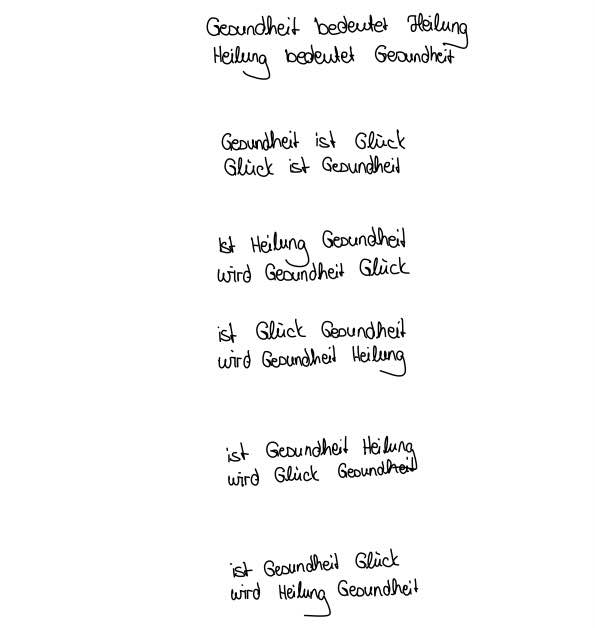 Gesundheit bedeutet Heilung
Heilung bedeutet Gesundheit
Gesundheit ist Glück
Glück ist Gesundheit
Ist Heilung Gesundheit
wird Gesundheit Glück
ist Glück Gesundheit
wird Gesundheit Heilung
ist Gesundheit Heilung
wird Glück Gesundheit
ist Gesundheit Glück
wird Heilung Gesundheit